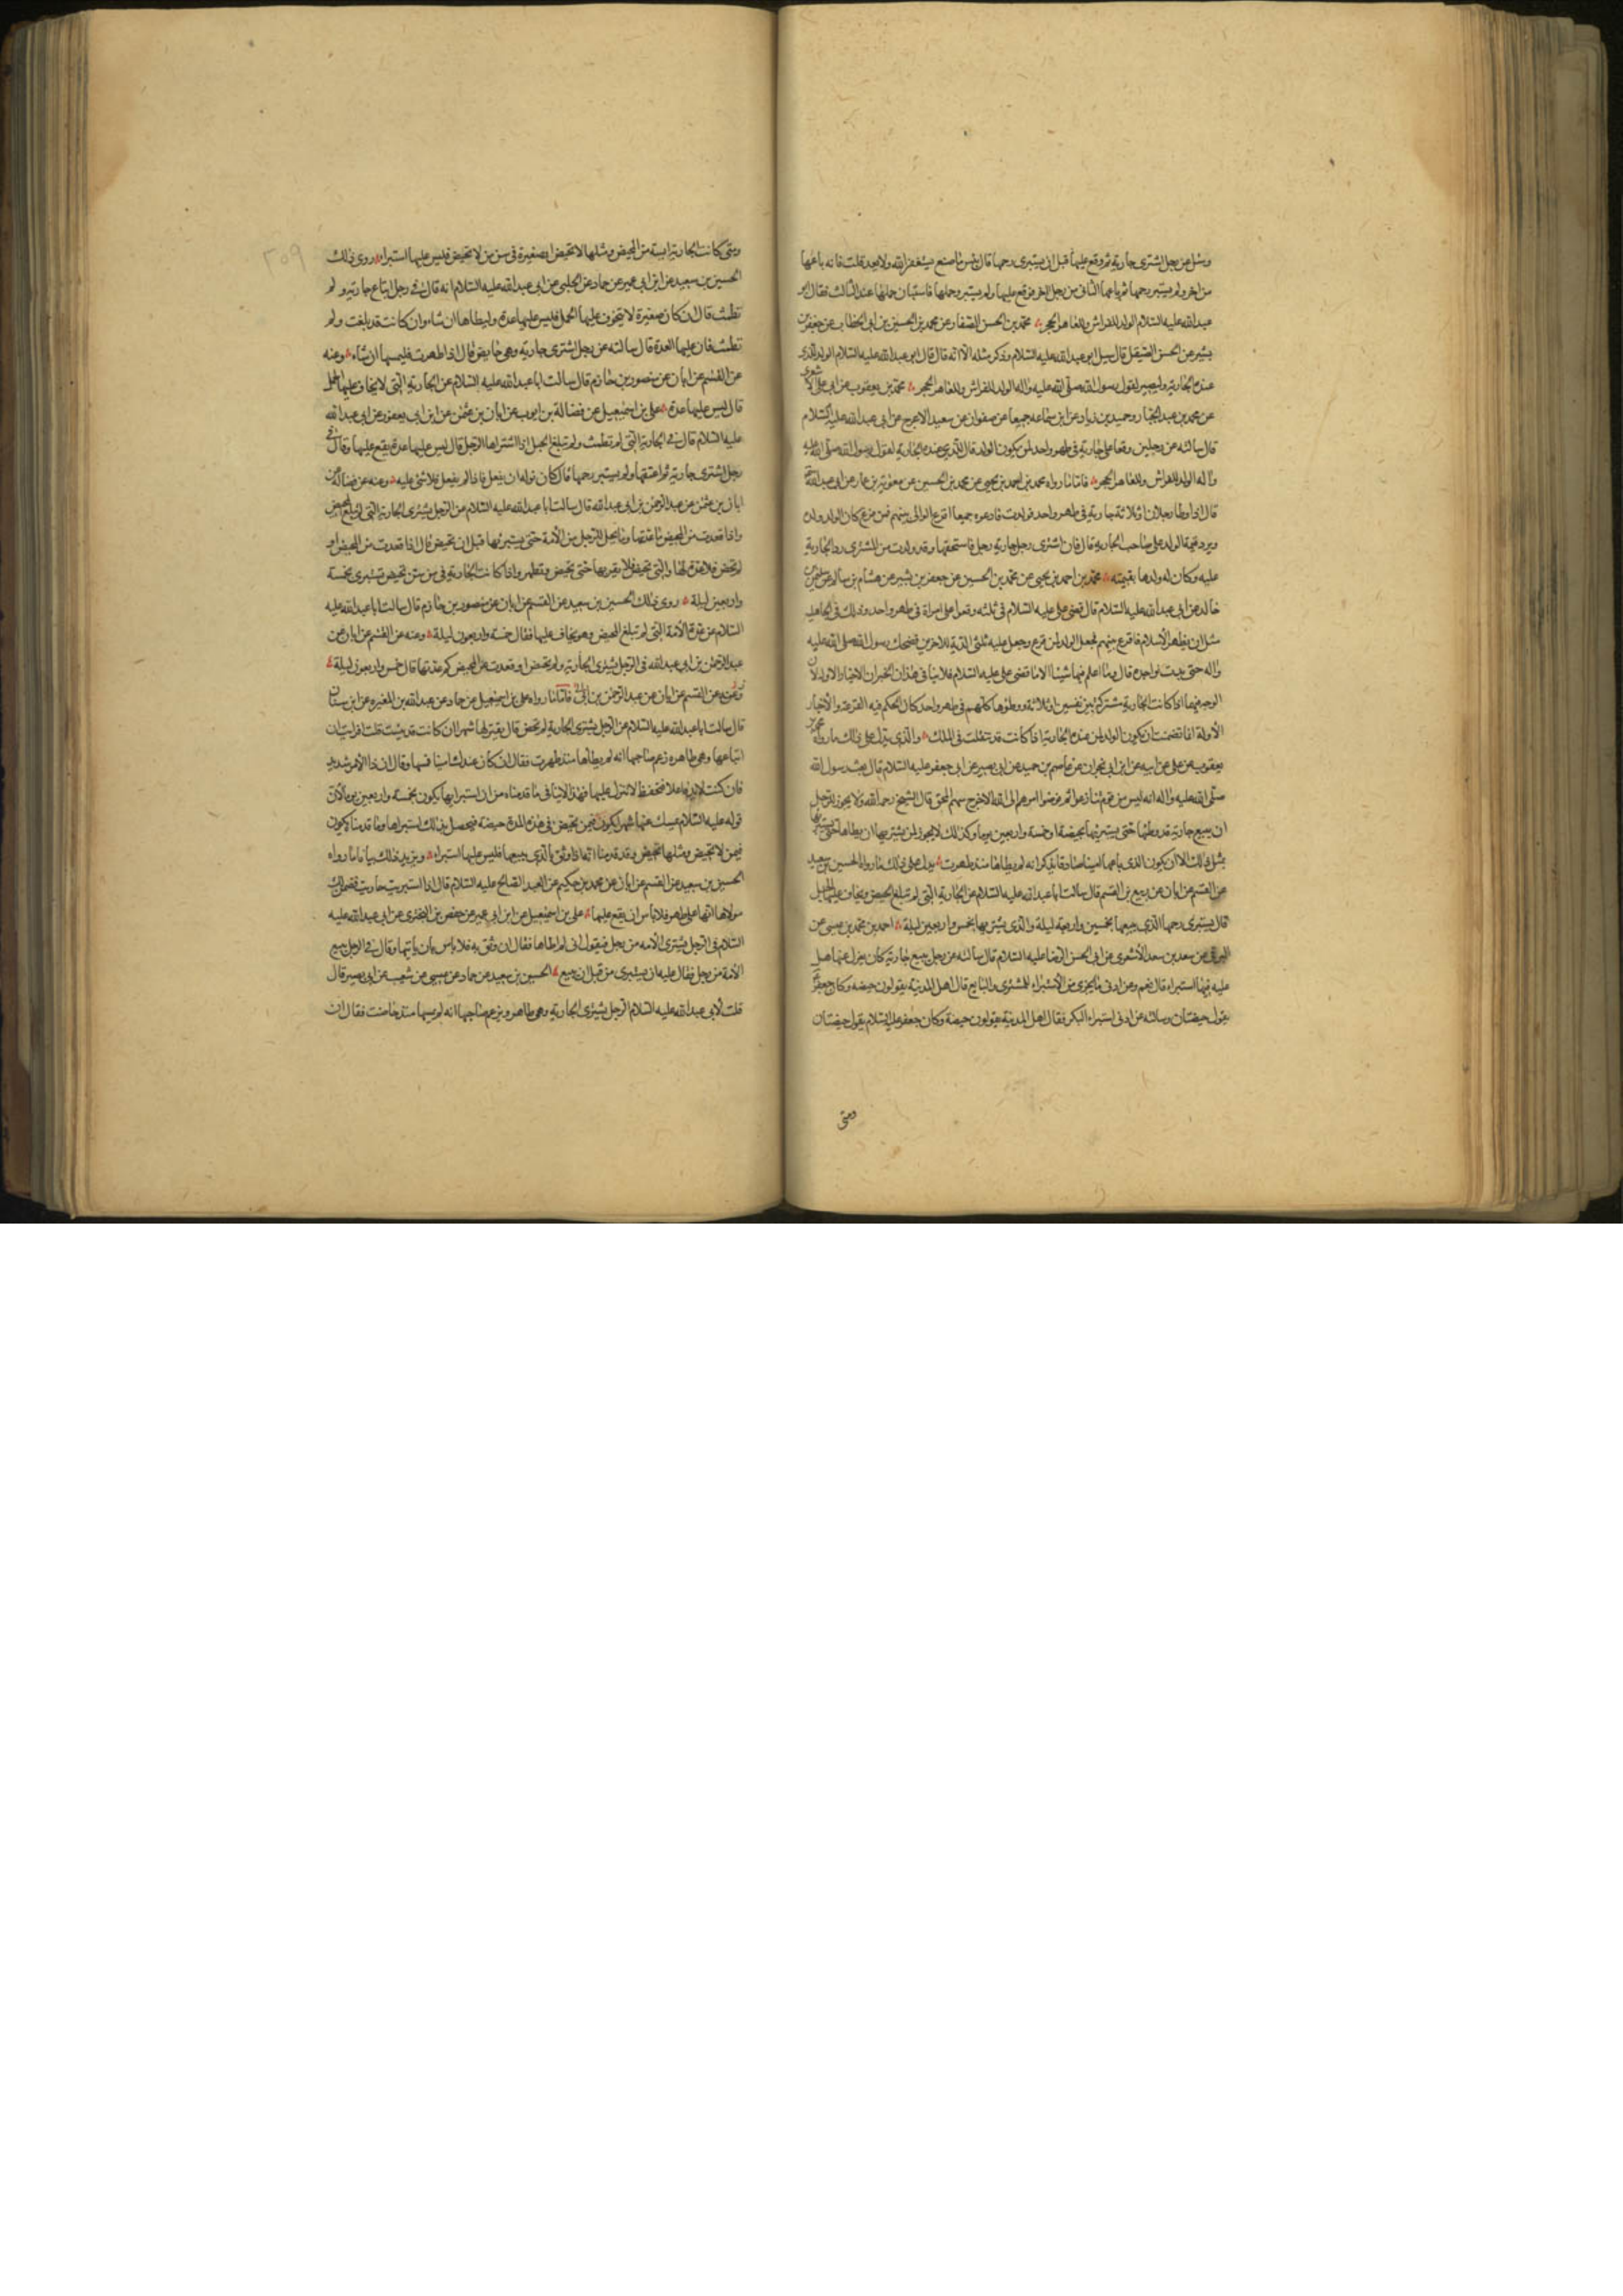 وسئل عن رجل اشترى جارية ثم وقع عليها قبل ان يستبرئ رحمها قال بئس ما صنع يستغفر الله ولا يعد قلت فانه باعها
من اخر ولم يستبر رحمها ثم باعها الثاني من رجل اخر فوقع عليها ولم يستبر رحمها فاستبان حملها عند الثالث فقال ابو
عبد الله عليه السلام الولد للفراش وللعاهر الحجر محمد بن الحسن الصفار عن محمد بن الحسين بن ابي الخطاب عن جعفر بن
بشير عن الحسن الصيقل قال سئل ابو عبد الله عليه السلام وذكر مثله الا انه قال قال ابو عبد الله عليه السلام الولد للذي
عنده الجارية وليصبر لقول رسول الله صلى الله عليه واله الولد للفراش وللعاهر الحجر محمد بن يعقوب عن ابي علي الاشعري
عن محمد بن عبد الجبار وحميد بن زياد عن ابن سماعه جميعا عن صفوان عن سعيد الاعرج عن ابي عبد الله عليه السلام
قال سالته عن رجلين وقعا على جارية في طهر واحد لمن يكون الولد قال للذي عنده الجارية لقول رسول الله صلى الله عليه
واله الولد للفراش وللعاهر الحجر فاما ما رواه محمد بن احمد بن يحيى عن محمد بن الحسين عن معوية بن عمار عن ابي عبد الله
قال اذا وطئ رجلان او ثلاثة جارية في طهر واحد فولدت فادعوه جميعا اقرع الوالي بينهم فمن قرع كان الولد ولده
ويرد قيمة الولد على صاحب الجارية قال فان اشترى رجل جارية رجل فاستحقها وقد ولدت من المشتري رد الجارية
عليه وكان له ولدها بقيمته محمد بن احمد بن يحيى عن محمد بن الحسين عن جعفر بن بشير عن هشام بن سالم عن سليمن بن
خالد عن ابي عبد الله عليه السلام قال قضى علي عليه السلام في ثلثه وقعوا على امراة في طهر واحد وذلك في الجاهلية
قبل ان يظهر الاسلام فاقرع بينهم فجعل الولد لمن قرع وجعل عليه ثلثي الدية للاخرين فضحك رسول الله صلى الله عليه
واله حتى بدت نواجده قال وما اعلم فيها شيئا الا ما قضى علي عليه السلام فلا ينافي هذان الخبران الاخبار الاولة لان
الوجه فيهما اذا كانت الجارية مشتركة بين نفسين او ثلاثة ووطئوها كلهم في طهر واحد كان الحكم فيه القرعة والاخبار
الاولة انما تضمنت ان يكون الولد لمن عنده الجارية اذا كانت قد تنقلت في الملك والذي يدل على ذلك ما رواه محمد بن
يعقوب عن علي عن ابيه عن ابن ابي نجران عن عاصم بن حميد عن ابي بصير عن ابي جعفر عليه السلام قال بعث رسول الله
صلى الله عليه واله انه ليس من قوم تنازعوا ثم فوضوا امرهم الى الله الا خرج سهم المحق قال الشيخ رحمه الله ولا يجوز للرجل
ان يبيع جارية قد وطئها حتى يستبرئها بحيضة او خمسة واربعين يوما وكذلك لا يجوز لمن يشتريها ان يطاها حتى يستبرئها
بمثل ذلك الا ان يكون الذي باعها امينا صادقا يذكر انه لم يطاها منذ طهرت يدل على ذلك ما رواه الحسين بن سعيد
عن القسم عن ابان عن ربيع بن القسم قال سالت ابا عبد الله عليه السلام عن الجارية التي لم تبلغ المحيض ويخاف عليها الحبل
قال يستبرئ رحمها الذي يبيعها بخمس واربعين ليلة والذي يشتريها بخمس واربعين ليلة احمد بن محمد بن عيسى عن
البرقي عن سعد بن سعد الاشعري عن ابي الحسن الرضا عليه السلام قال سالته عن رجل يبيع جارية كان يعزل عنها هل
عليه فيها استبراء قال نعم وعن ادنى ما يجزي من الاستبراء للمشتري والبايع قال اهل المدينة يقولون حيضه وكان جعفر
يقول حيضتان وسالته عن ادنى استبراء البكر فقال اهل المدينة يقولون حيضة وكان جعفر عليه السلام يقول حيضتان
ومتى
٢٠٩
ومتى كانت الجارية ايسة من المحيض ومثلها لا تحيض او صغيرة في سن من لا تحيض فليس عليها استبراء روى ذلك
الحسين بن سعيد عن ابن ابي عمير عن حماد عن الحلبي عن ابي عبد الله عليه السلام انه قال في رجل ابتاع جارية ولم
تطمث قال ان كان صغيرة لا يتخوف عليها الحمل فليس عليها عدة وليطاها ان شاء وان كانت قد بلغت ولم
تطمث فان عليها العدة قال سالته عن رجل اشترى جارية وهي حايض قال اذا طهرت فليمسها ان شاء وعنه
عن القسم عن ابان عن منصور بن حازم قال سالت ابا عبد الله عليه السلام عن الجارية التي لا يخاف عليها الحمل
قال ليس عليها عدة علي بن اسمعيل عن فضالة بن ايوب عن ابان بن عثمن عن ابن ابي يعفور عن ابي عبد الله
عليه السلام قال في الجارية التي لم تطمث ولم تبلغ الحبل اذا اشتراها الرجل قال ليس عليها عدة يقع عليها وقال في
رجل اشترى جارية ثم اعتقها ولم يستبر رحمها قال كان نوله ان يفعل فاذا لم يفعل فلا شئ عليه وعنه عن فضاله عن
ابان بن عثمن عن عبد الرحمن بن ابي عبد الله قال سالت ابا عبد الله عليه السلام عن الرجل يشتري الجارية التي لم تبلغ المحيض
واذا قعدت من المحيض ما عدتها وما يحل للرجل من الامة حتى يستبرئها قبل ان تحيض قال اذا قعدت من المحيض او
لم تحض فلا عدة لها والتي تحيض فلا يقربها حتى تحيض وتطهر واذا كانت الجارية في سن من تحيض تستبرئ بخمسة
واربعين ليلة روى ذلك الحسين بن سعيد عن القسم عن ابان عن منصور بن حازم قال سالت ابا عبد الله عليه
السلام عن عدة الامة التي لم تبلغ المحيض وهو يخاف عليها فقال خمسة واربعون ليلة وعنه عن القسم عن ابان عن
عبد الرحمن بن ابي عبد الله في الرجل يشتري الجارية ولم تحض او قعدت عن المحيض كم عدتها قال خمس واربعون ليلة
وعنه عن القسم عن ابان عن عبد الرحمن بن ابي فاما ما رواه علي بن اسمعيل عن حماد عن عبد الله بن المغيره عن ابن سنان
قال سالت ابا عبد الله عليه السلام عن الرجل يشتري الجارية لم تحض قال يعتزلها شهرا ان كانت قد يئست قلت افرايت ان
ابتاعها وهي طاهره وزعم صاحبها انه لم يطاها منذ طهرت فقال ان كان عندك امينا فمسها وقال ان ذا الامر شديد
فان كنت لا بد فاعلا فتحفظ لا تنزل عليها فهذا لا ينافي ما قدمناه من ان استبرائها يكون بخمسة واربعين يوما لان
قوله عليه السلام يمسك عنها شهرا يكون فيمن تحيض في هذه المدة حيضة فيحصل بذلك استبراها وما قدمنا يكون
فيمن لا تحيض ومثلها تحيض وقد قدمنا انها اذا وثق بالذي يبيعها فليس عليها استبراء ويزيد ذلك بيانا ما رواه
الحسين بن سعيد عن القسم عن ابان عن محمد بن حكيم عن العبد الصالح عليه السلام قال اذا اشتريت جارية فضمن لك
مولاها انها على طهر فلا باس ان يقع عليها علي بن اسمعيل عن ابن ابي عمير عن حفص بن البختري عن ابي عبد الله عليه
السلام في الرجل يشتري الامة من رجل فيقول اني لم اطاها فقال ان وثق به فلا باس بان ياتيها وقال في الرجل يبيع
الامة من رجل فقال عليه ان يستبرئ من قبل ان يبيع الحسين بن سعيد عن حماد عن عيسى عن شعيب عن ابي بصير قال
قلت لابي عبد الله عليه السلام الرجل يشتري الجارية وهي طاهر ويزعم صاحبها انه لم يمسها منذ حاضت فقال ان